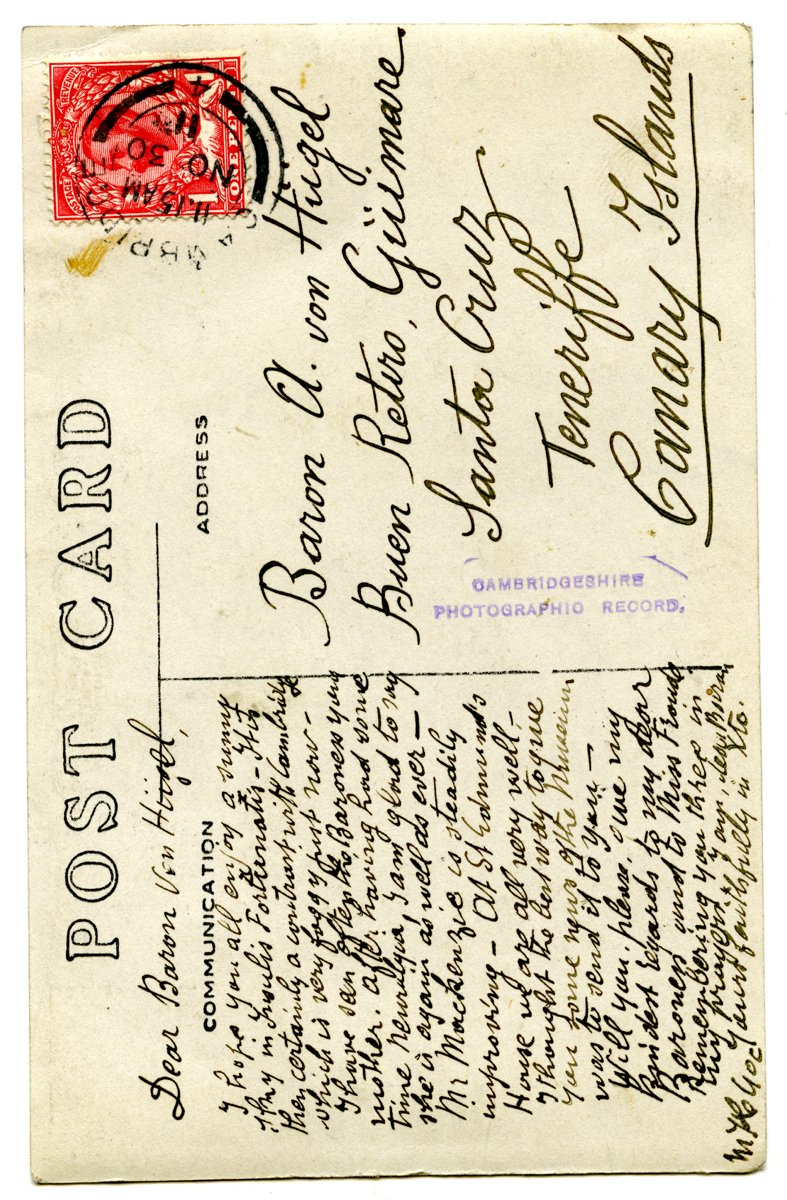 POST CARD
COMMUNICATION
ADDRESS
Dear Baron Von Hügel,
I hope you all enjoy a sunny
stay in Insulis Fortunatis - This
they certainly a contrast with Cambridge
which is very foggy just now -
I have seen often the Baroness your
mother. After having had some
time neuralgia, I am glad to say
she is again as well as ever -
Mr Mackenzie is steadily
improving - At St Edmund's
House we are all very well -
I thought the best way to give
you some news of the Museum
was to send it to you -
Will you, please, give my
kindest regards to my dear
Baroness and to Miss Froude
Remembering you three in
my prayers I am, dear Baron
Yours faithfully in Xto.
Baron A. von Hügel
Buen Retiro, Güimare
Santa Cruz
Teneriffe
Canary Islands
CAMBRIDGESHIRE
PHOTOGRAPHIC RECORD.
CAMBRIDGE
11.15 AM
NO 30
11
4
POSTAGE
REVENUE
ONE PENNY
1
1